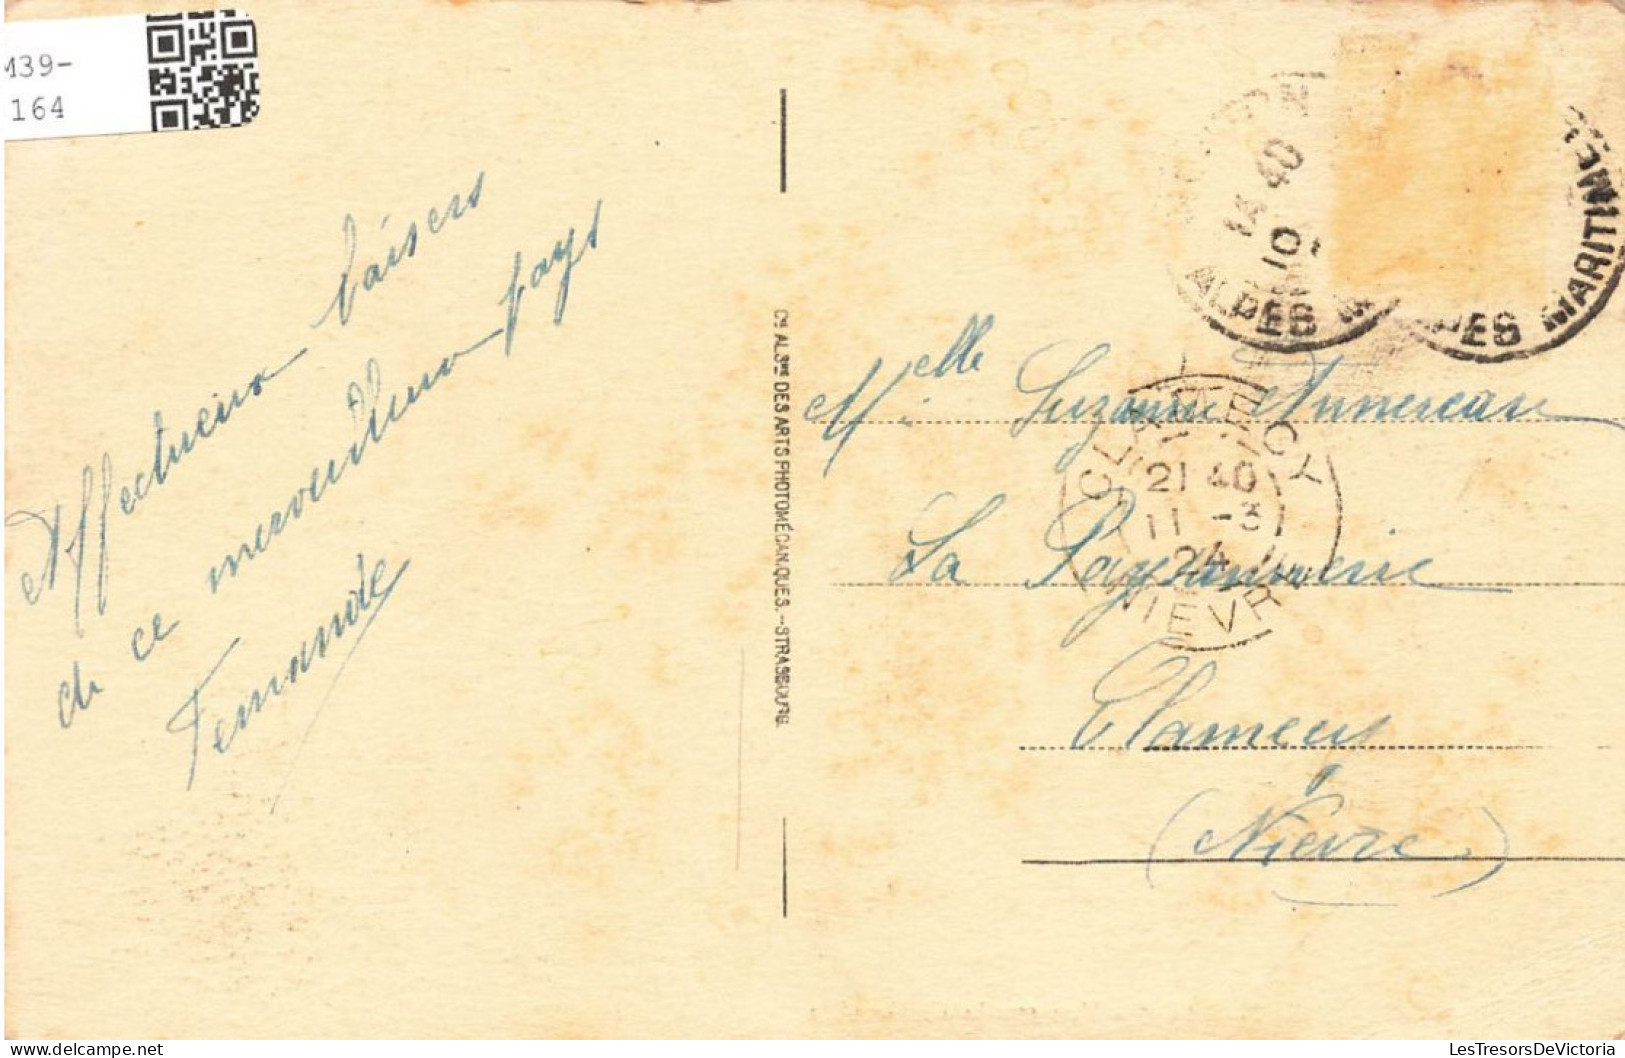 M39-
164
Affectueux baisers
de ce merveilleux pays
Fernande
Cie ALSne DES ARTS PHOTOMÉCANIQUES.-STRASBOURG.
14 40
10
ALPES MARITIMES
Melle Suzanne Annereau
CLAMECY
21 40
11 -3
24
NIEVRE
La Paysannerie
Clamecy
(Nièvre)
LesTresorsDeVictoria
www.delcampe.net